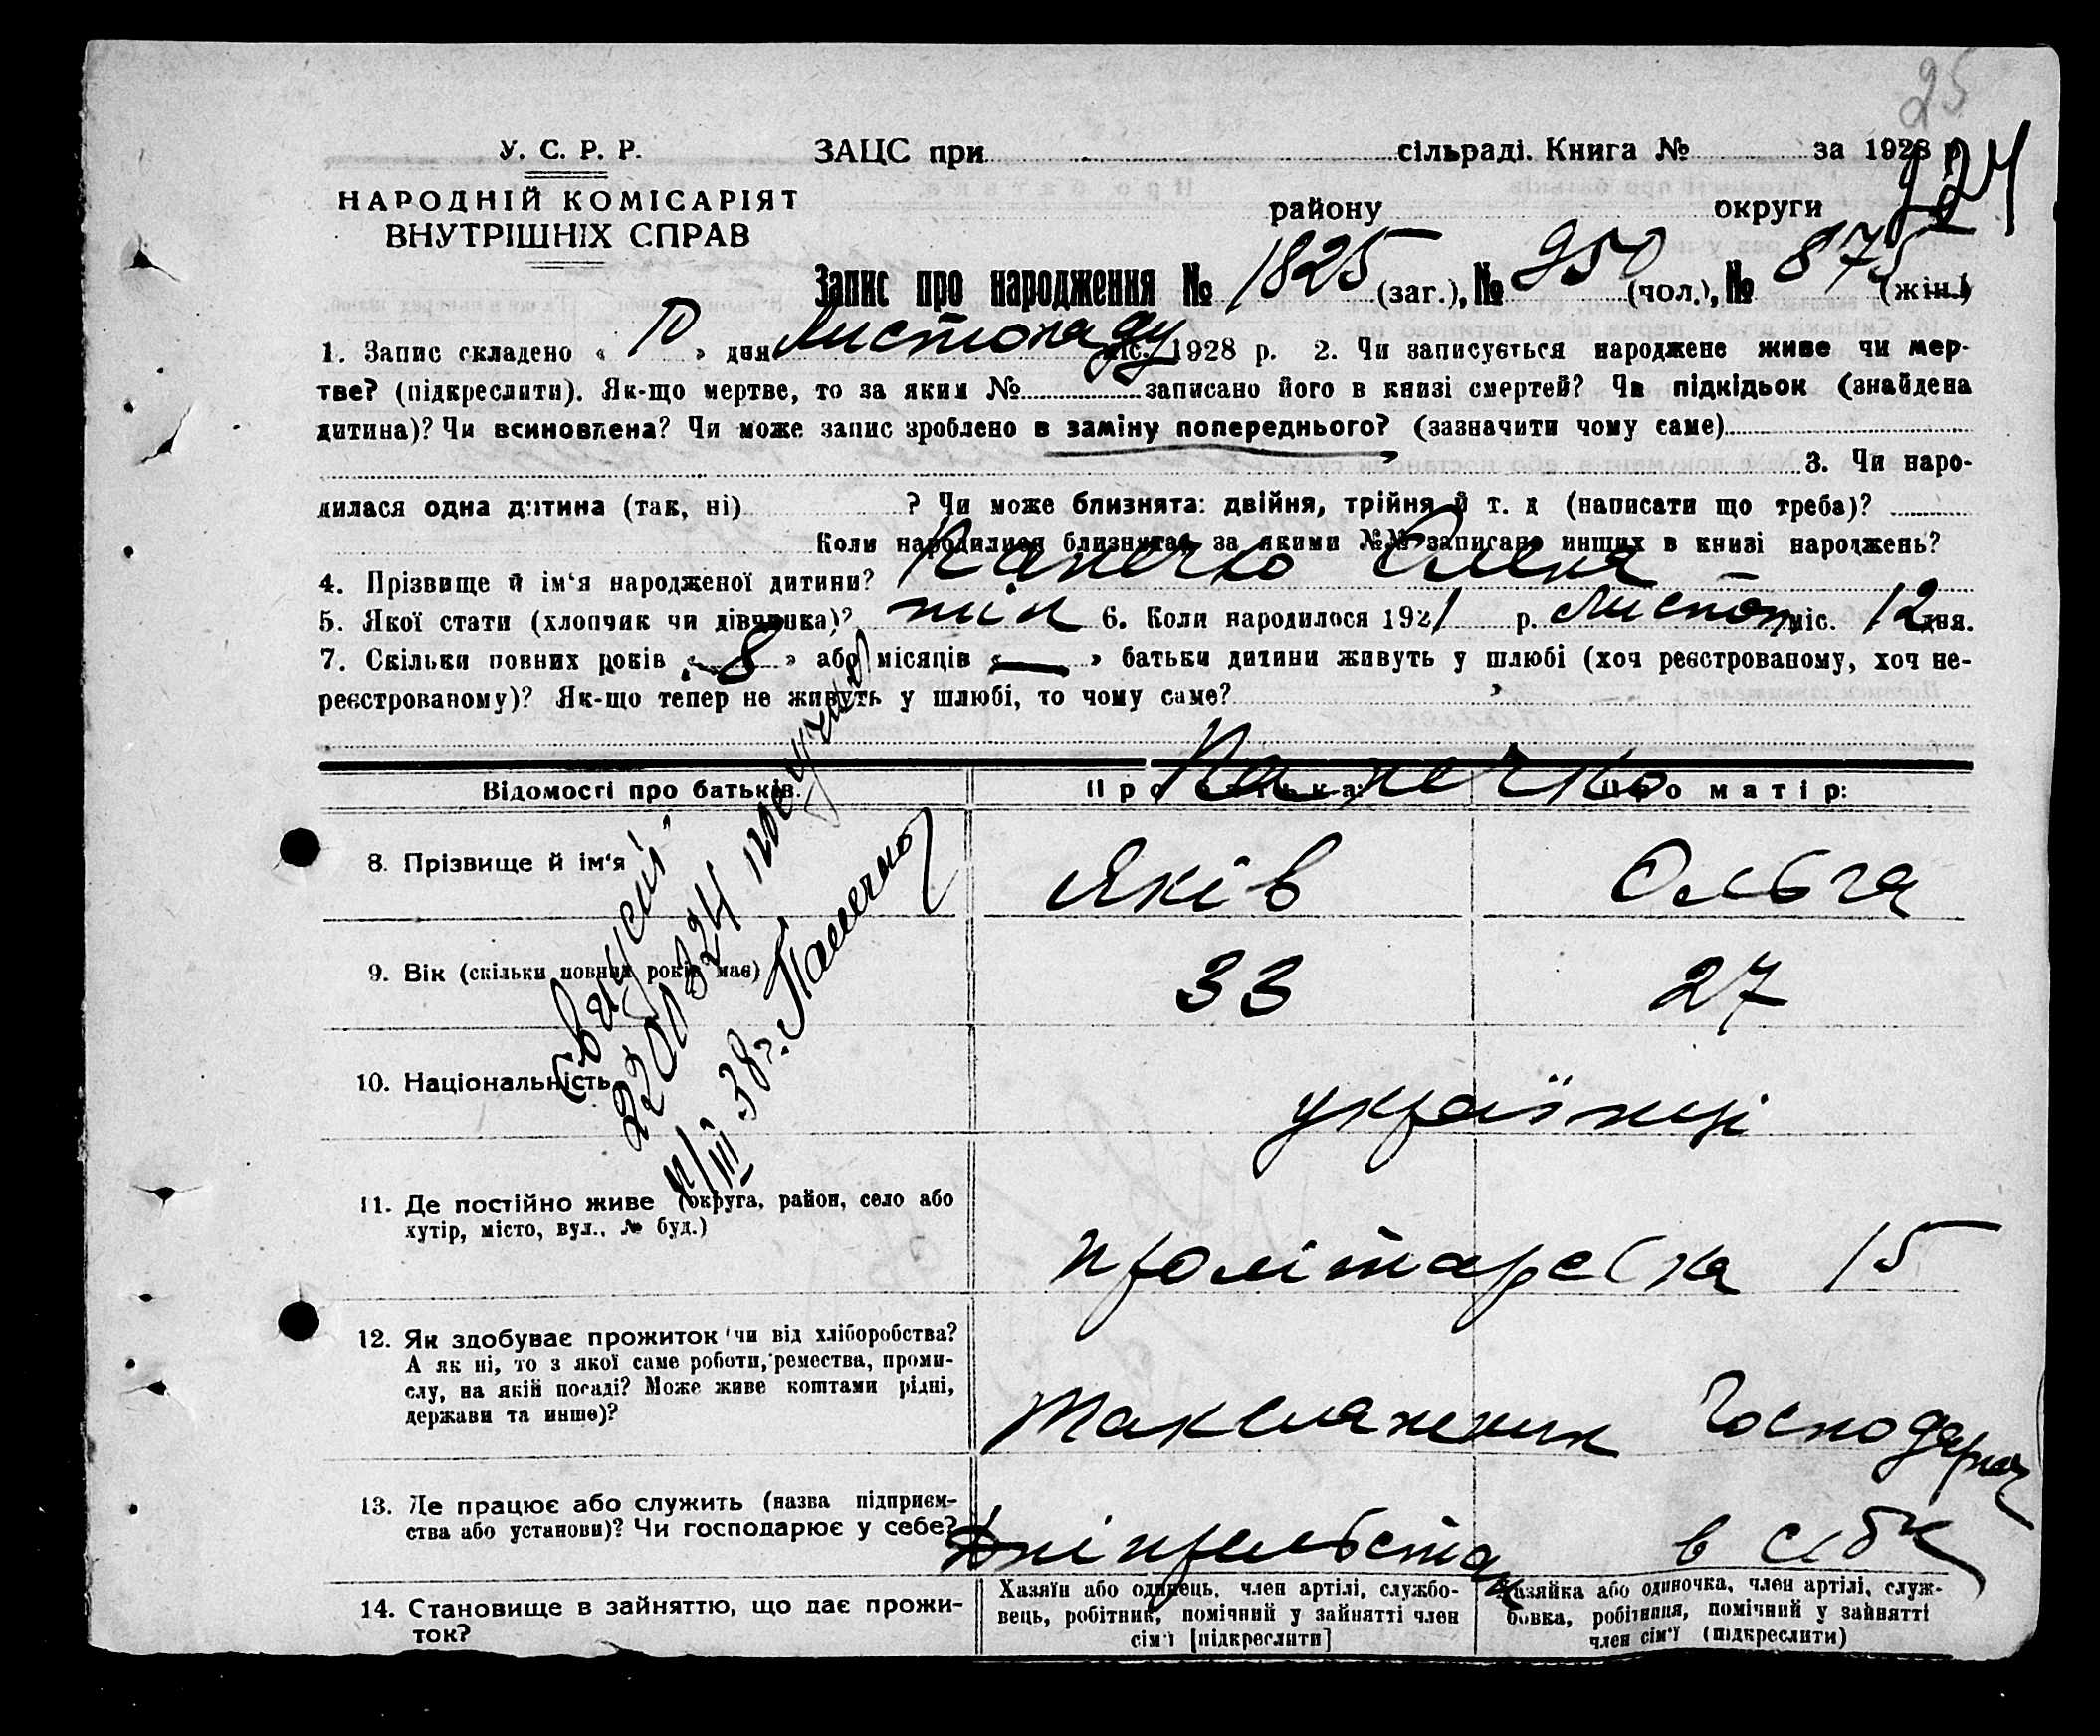 25
124
У. С. Р. Р.
НАРОДНІЙ КОМІСАРІЯТ
ВНУТРІШНІХ СПРАВ
ЗАЦС при сільраді. Книга № за 1928 р.
району округи
Запис про народження № 1825 (заг.), № 950 (чол.), № 875 (жін.)
1. Запис складено « 10 » дня Листопаду міс. 1928 р. 2. Чи записується народжене живе чи мер-
тве? (підкреслити). Як-що мертве, то за яким № записано його в книзі смертей? Чи підкідьок (знайдена
дитина)? Чи всиновлена? Чи може запис зроблено в заміну попереднього? (зазначити чому саме)
3. Чи наро-
дилася одна дитина (так, ні) ? Чи може близнята: двійня, трійня й т. д (написати що треба)?
Коли народилися близнята, за якими №№ записано инших в книзі народжень?
4. Прізвище й ім‘я народженої дитини?
5. Якої стати (хлопчик чи дівчинка)? жін 6. Коли народилося 1921 р. Листоп міс. 12 дня.
7. Скільки повних років « 8 » або місяців « — » батьки дитини живуть у шлюбі (хоч реєстрованому, хоч не-
реєстрованому)? Як-що тепер не живуть у шлюбі, то чому саме?
Відомості про батьків. Про батька: Про матір:
8. Прізвище й ім‘я Яків Ольга
9. Вік (скільки повних років має) 33 27
10. Національність українці
11. Де постійно живе (округа, район, село або
хутір, місто, вул., № буд.)
пролітарська 15
12. Як здобуває прожиток чи від хліборобства?
А як ні, то з якої саме роботи, ремества, проми-
слу, на якій посаді? Може живе коштами рідні,
держави та инше)?
Господарка
13. Де працює або служить (назва підприєм-
ства або установи)? Чи господарює у себе?
Дніпрельстан в себе
14. Становище в зайняттю, що дає прожи-
ток?
Хазяїн або одинець, член артілі, службо-
вець, робітник, помічний у зайнятті член
сім‘ї [підкреслити]
Хазяйка або одиночка, член артілі, служ-
бовка, робітниця, помічний у зайнятті
член сім‘ї (підкреслити)
38 г.